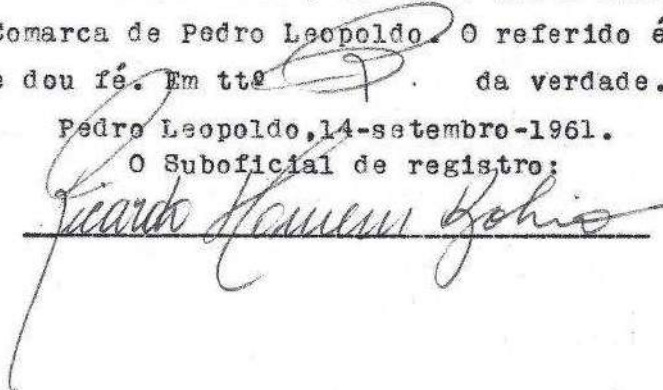 Comarca de Pedro Leopoldo. O referido é
e dou fé. Em ttº . da verdade.
Pedro Leopoldo,14-setembro-1961.
O Suboficial de registro:
Ricardo Homem